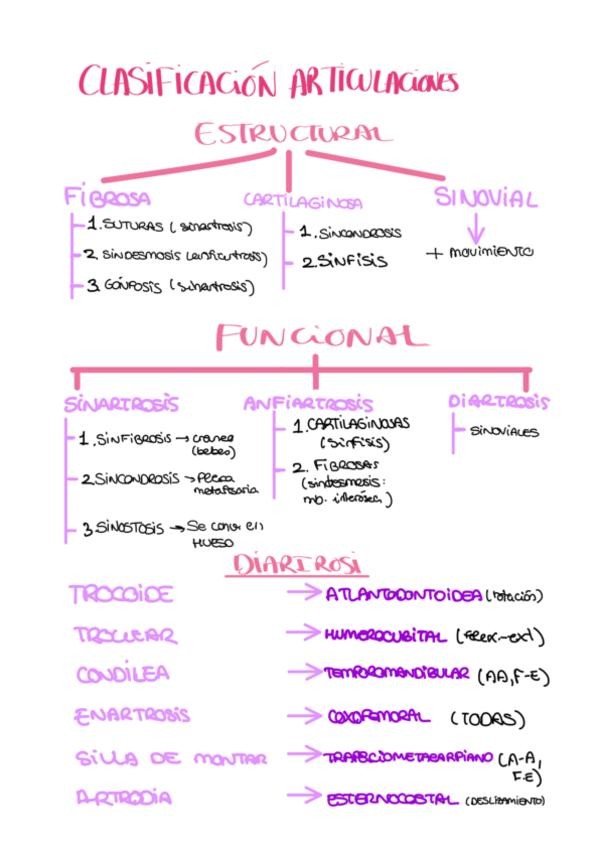 CLASIFICACIÓN ARTICULACIONES
ESTRUCTURAL
FIBROSA
1. SUTURAS (sinartrosis)
2. SINDESMOSIS (anfiartrosis)
3. GÓNFOSIS (sinartrosis)
CARTILAGINOSA
1. SINCONDROSIS
2. SÍNFISIS
SINOVIAL
+ MOVIMIENTO
FUNCIONAL
SINARTROSIS
1. SINFIBROSIS → craneo
(bebes)
2. SINCONDROSIS → Placa
metafisaria
3. SINOSTOSIS → Se conv. en
HUESO
ANFIARTROSIS
1. CARTILAGINOSAS
(Sínfisis)
2. FIBROSAS
(sindesmosis:
mb. interósea)
DIARTROSIS
SINOVIALES
DIARTROSI
TROCOIDE → ATLANTODONTOIDEA (rotación)
TROCLEAR → HUMEROCUBITAL (flex-ext)
CONDILEA → TEMPOROMANDIBULAR (AA, F-E)
ENARTROSIS → COXOFEMORAL (TODAS)
SILLA DE MONTAR → TRAPECIOMETACARPIANO (A-A,
F.E)
ARTRODIA → ESTERNOCOSTAL (DESLIZAMIENTO)